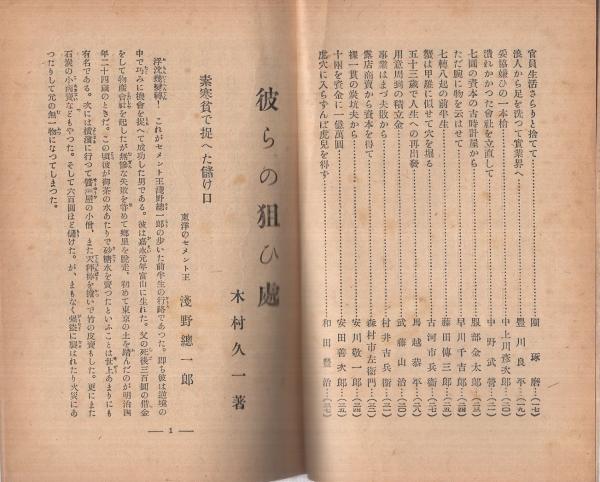 官員生活さらりと捨てて……團琢磨…(一七)
浪人から足を洗つて實業界へ……豐川良平…(一九)
妥協嫌ひの一本槍……中上川彥次郎…(二〇)
潰れかかつた會社を立直して……中野武營…(二一)
七圓の資本の古時計屋から……服部金太郎…
ただ腕に物を云はせて……早川千吉郎…(二四)
七轉八起の前半生……藤田傳三郎…(二五)
蟹は甲羅に似せて穴を堀る……古河市兵衞…(二七)
五十三歲で人生への再出發……馬越恭平…(二八)
用意周到の積立金……武藤山治…(三〇)
事業はまづ夫敎から……村井吉兵衞…(三一)
露店商賣から資本を得て……森村市左衞門…(三二)
裸一貫の炭坑夫から……安川敬一郎…(三四)
十兩を資金に一億萬圓……安田善次郎…(三五)
虎穴に入らずんば虎兒を得ず……和田豐治…(三七)
彼らの狙ひ處
木村久一著
東洋のセメント王 淺野總一郎
素寒貧で捉へた儲け口
浮沈幾變轉！ これがセメント王淺野總一郎の步いた前半生の行路であつた。卽ち彼は逆境の
中で巧みに機會を捉へて成功した男である。彼は嘉永元年富山に生れた。父の死後三百圓の借金
をして物產會社を起したが無慘な失敗を嘗めて鄕里を脫走、初めて東京の土を踏んだのが明治四
年二十四歲のときだ。この頃彼が御茶の水あたりで砂糖水を賣つたといふことは世上あまりにも
有名である。次には橫濱に行つて醬油屋の小僧、また天秤棒を擔いで竹の皮賣もした。更にまた
石炭の小商賣などもやつた。そして六百圓ほど儲けた。が、まもなく强盜に襲はれたり火災にあ
つたりして元の無一物になつてしまつた。
— 1 —